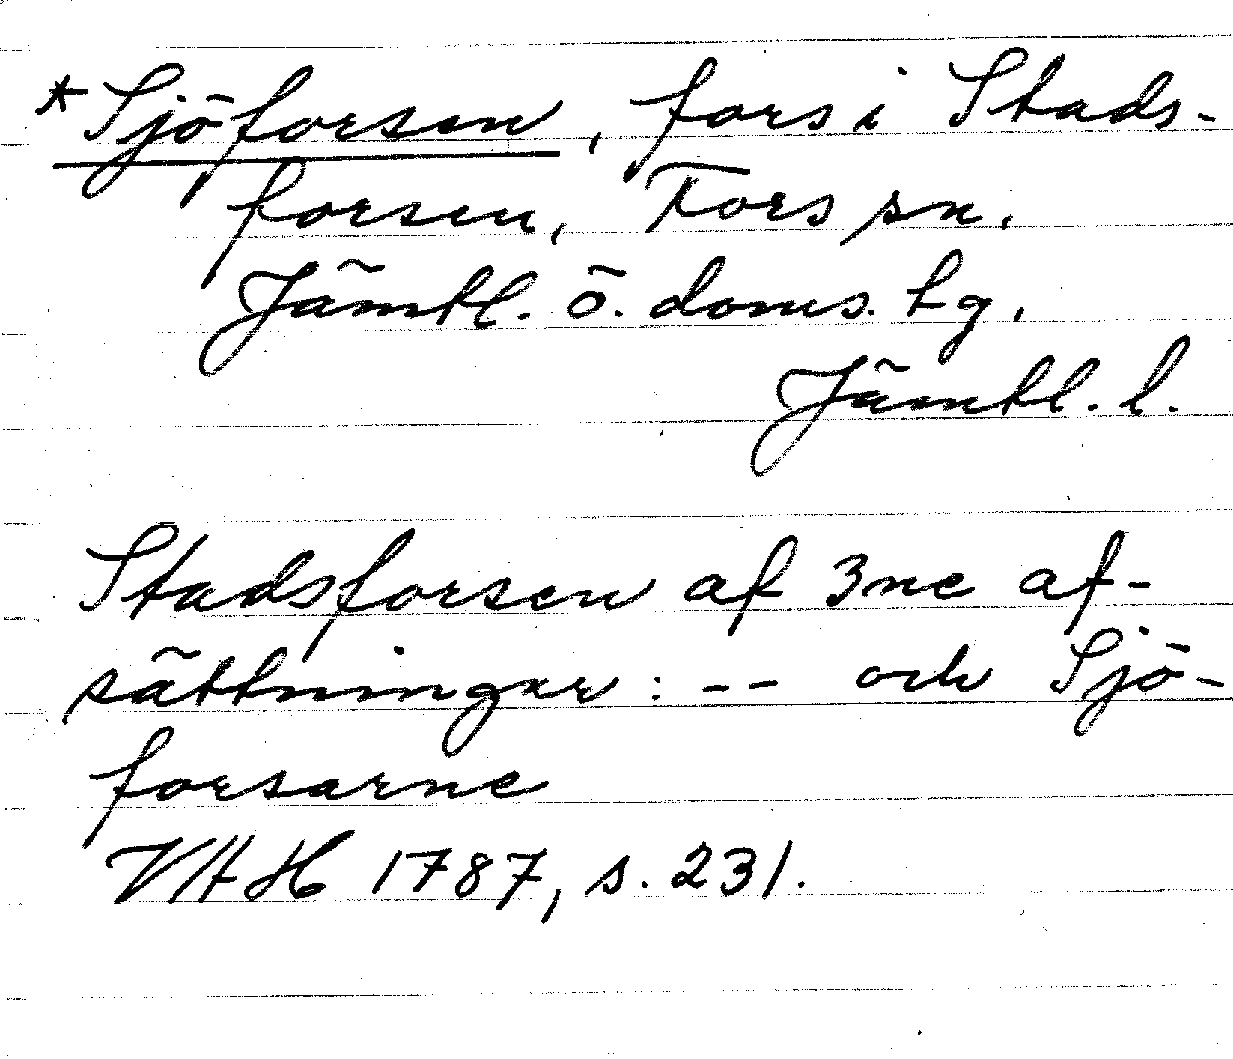 *Sjöforsen, fors i Stads-
forsen, Fors sn.
Jämtl. ö. doms. tg.
Jämtl. l.
Stadsforsen af 3ne af-
sättningar: -- och Sjö-
forsarne
VAH 1787, s. 231.